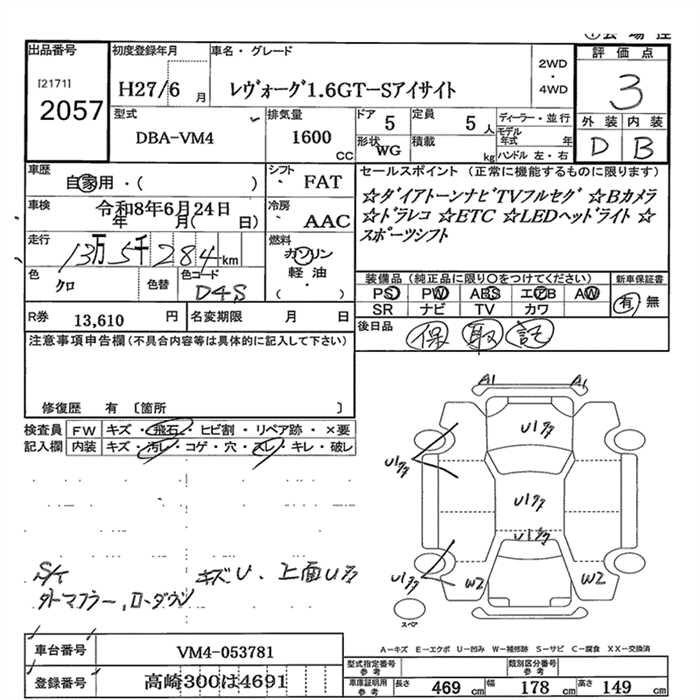 出品番号
[2171]
2057
初度登録年月
H27/6 月
車名・グレード
レヴォーグ1.6GT-Sアイサイト
2WD
・
4WD
評価点
3
外装 内装
D B
型式
DBA-VM4
排気量
1600
CC
ドア
5
定員
5 人
形状
WG
積載
kg
ディーラー・並行
モデル
年式 年
ハンドル 左・右
車歴
自家用・( )
シフト
FAT
車検
令和8年6月24日
年 月( 日)
冷房
AAC
走行
13万5千284km
燃料
ガソリン
軽油
( )
色
クロ
色替
色コード
D4S
R券 13,610 円
名変期限 月 日
セールスポイント (正常に機能するものに限ります)
☆ダイアトーンナビTVフルセグ ☆Bカメラ
☆ドラレコ ☆ETC ☆LEDヘッドライト ☆
スポーツシフト
装備品 (純正品に限り○をつけてください)
PS PW ABS エアB AW
SR ナビ TV カワ
新車保証書
有 無
後日品
保 取 記
注意事項申告欄(不具合内容等は具体的に記入して下さい)
修復歴 有 〔箇所 〕
検査員 FW キズ・飛石・ヒビ割・リペア跡・×要
記入欄 内装 キズ・汚レ・コゲ・穴・スレ・キレ・破レ
A1 A1
U1キズ
U1キズ
U1キズ
U1キズ
U1キズ
W2 W2
スペア
キズU、上面Uキズ
タトマフラー、ローダウン
A-キズ E-エクボ U-凹み W-補修跡 S-サビ C-腐食 XX-交換済
車台番号 VM4-053781
登録番号 高崎300は4691
型式指定番号
参考
類別区分番号
参考
車庫証明用
参考
長さ 469 cm 幅 178 cm 高さ 149 cm